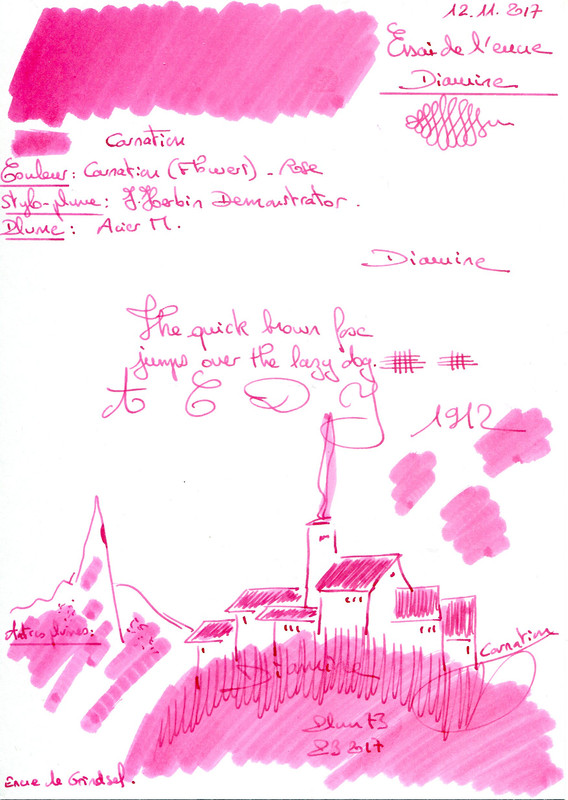 12.11.2017
Essai de l'encre
Diamine
Carnation
Couleur: Carnation (Flowers) - Rose
Stylo-plume: J.Herbin Demonstrator.
Plume: Acier M.
Diamine
The quick brown fox
jumps over the lazy dog.
A E D Y
1912
Autres plumes:
Carnation
Diamine
2017
Encre de Grindsel.